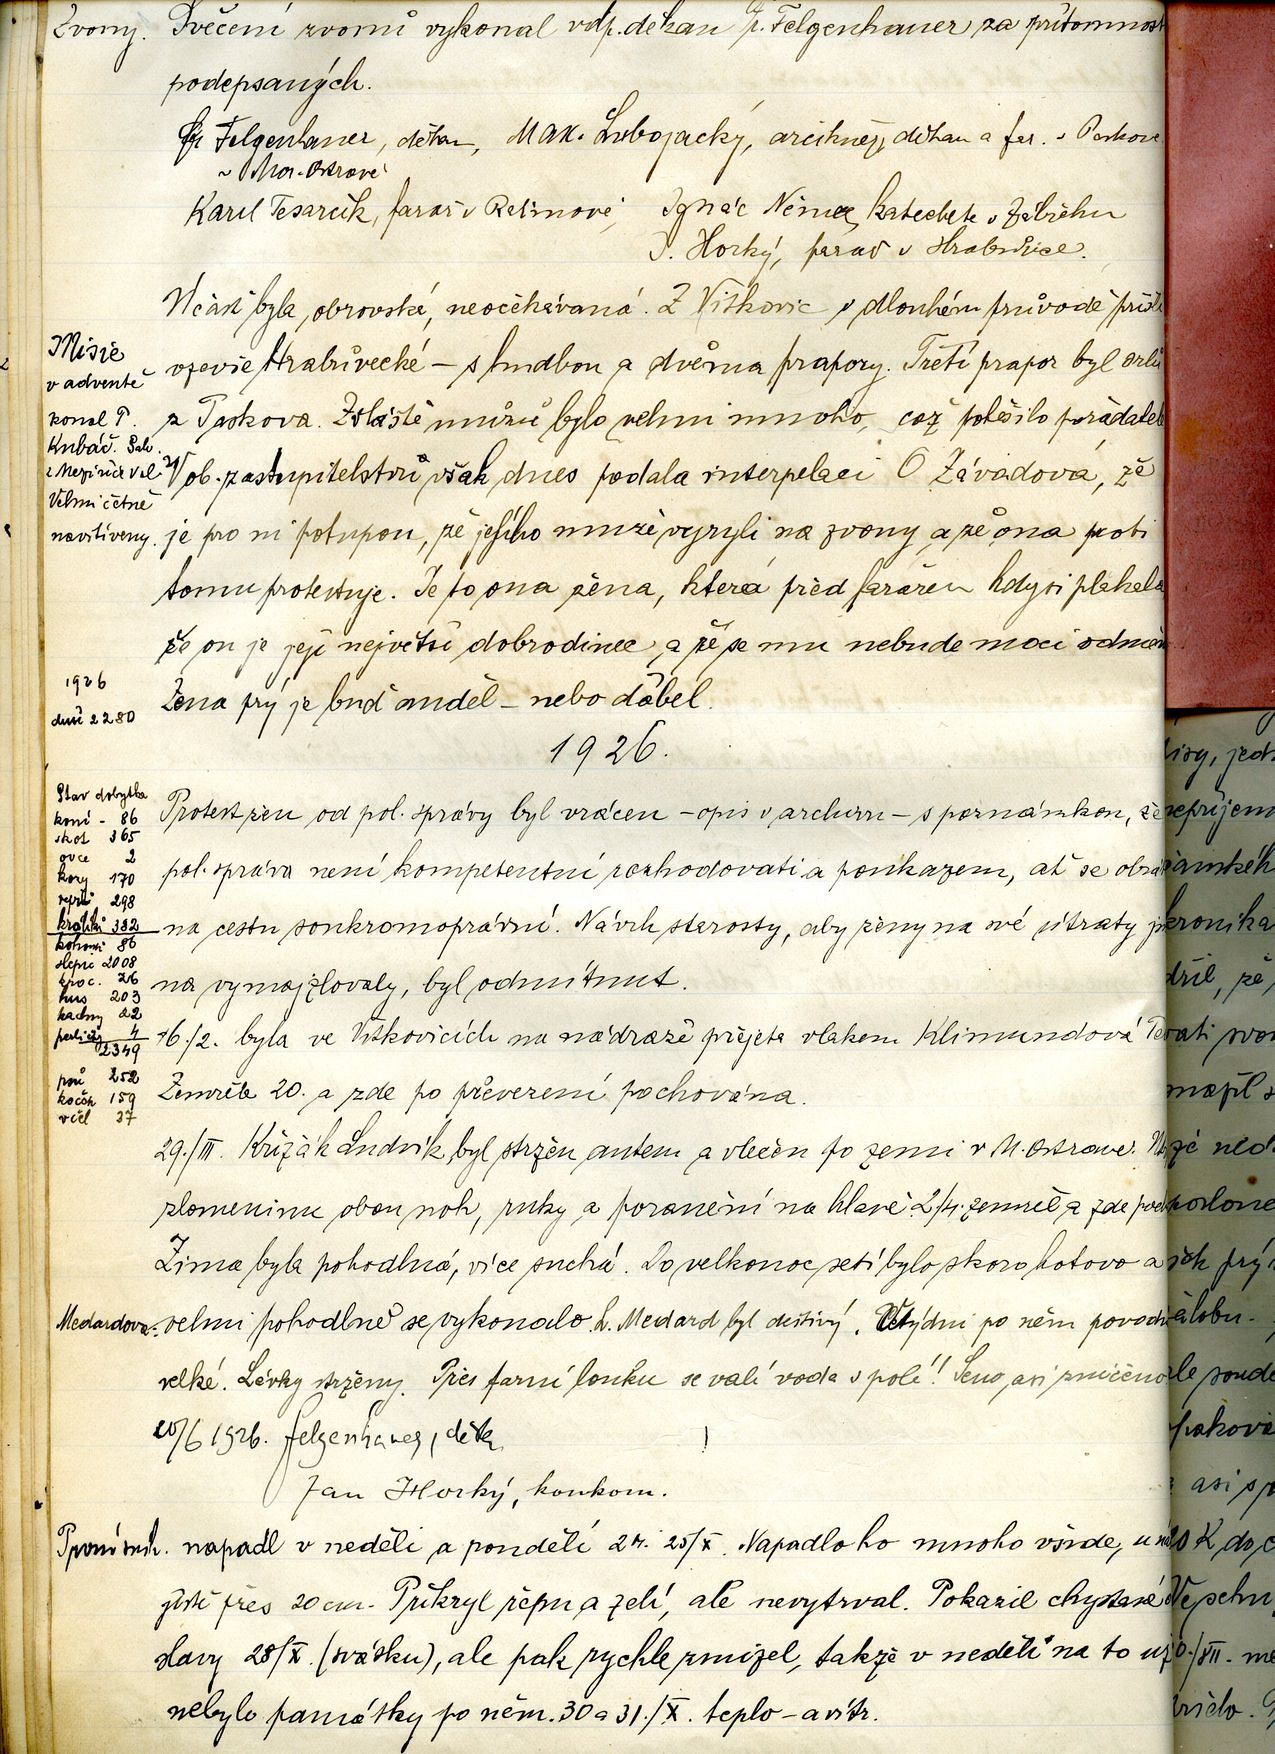 Zvony. Svěcení zvonů vykonal vdp. děkan P. Felgenhauer za přítomnosti
podepsaných.
Felgenhauer, děkan, Max. Lubojacký, arcikněz, děkan a far. v Paskově
v Mor. Ostravě
Karel Tesarčík, farář v Ratimově, Ignác Němec, katecheta v Zábřehu
J. Horký, farář v Hrabůvce.
Účast byla obrovská, neočekávaná. Z Vítkovic v dlouhém průvodě přišli
Misie
v adventě
konal P.
Kubáč. Sal.
z Meziříčí Val.
Velmi četně
navštíveny.
ovečce Hrabůvecké – s hudbou a dvěma prapory. Třetí prapor byl orlů
z Paskova. Zvláště mužů bylo velmi mnoho, což potěšilo pořadatele
V ob. zastupitelstvu však dnes podala interpelaci O. Závadová, že
je pro ni potupou, že jejího muže vyryli na zvony a že ona proti
tomu protestuje. Je to ona žena, která před farářem kdysi plakala
že on je její největší dobrodinec a že se mu nebude moci odměn
1926
duší 2280
Žena prý je buď anděl – nebo ďábel.
1926.
Stav dobytka
koní - 86
skot 365
ovce 2
kozy 170
vepři 298
králíků 382
kohouti 86
slepic 2008
kroc. 26
hus 203
kachny 22
perliček 4
2349
psů 252
koček 159
včel 37
Protest žen od pol. správy byl vrácen – opis v archivu – s poznámkou, že
pol. správa není kompetentní rozhodovati a poukazem, ať se obrátí
na cestu soukromoprávní. Návrh starosty, aby ženy na své útraty jm
na vymajzlovaly, byl odmítnut.
16./2. byla ve Vítkovicích na nádraží přejeta vlakem Klimundová Te
Zemřela 20. a zde po převezení pochována.
29./III. Křižák Ludvík byl stržen autem a vlečen po zemi v M. Ostravě.
zlomeninu obou noh, ruky a poranění na hlavě. 2/4. zemřel a zde poch
Zima byla pohodlná, více suchá. Do velkonoc setí bylo skoro hotovo a
Medardova - velmi pohodlně se vykonalo. Sv. Medard byl deštivý. Ve týdni po něm povodně
velké. Lávky strženy. Přes farní louku se valí voda s polí! Seno asi zničeno
20/6 1926. Felgenhauer, děkan
Jan Horký, konkom.
První sníh. napadl v neděli a pondělí 24. 25/X. Napadlo ho mnoho všude, u nás
jistě přes 20 cm. Přikryl řepu a zelí, ale nevytrval. Pokazil chystané
slavy 28/X. (svátku), ale pak rychle zmizel, takže v neděli na to už
nebylo památky po něm. 30 a 31./X. teplo – a vítr.